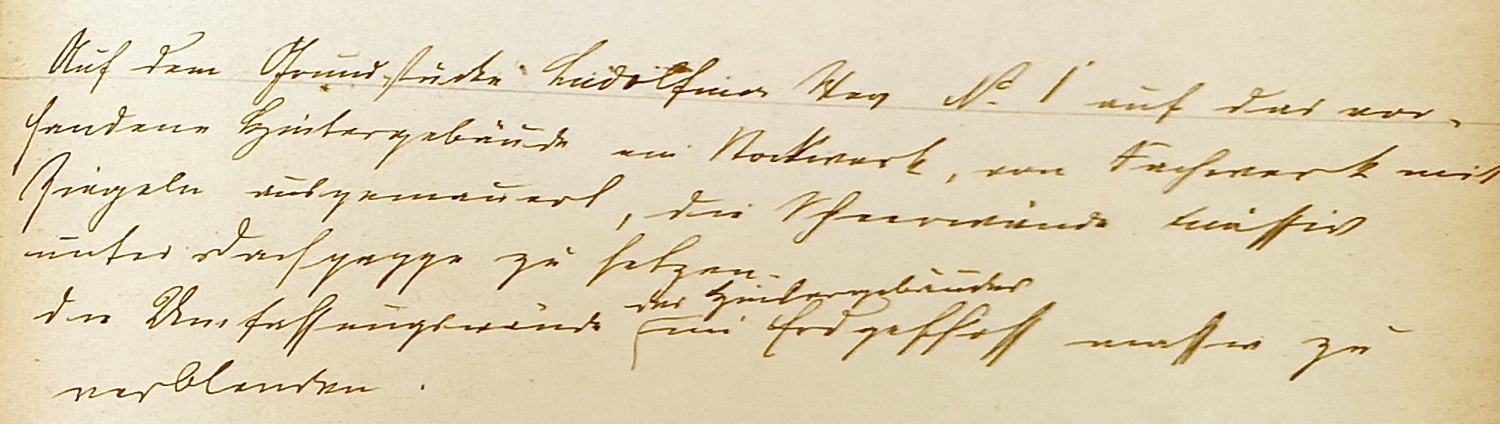 Auf dem Grundstücke Ludolfiner Weg No. 1 auf das vor-
handene Hintergebäude ein Stockwerk, von Fachwerk mit
Ziegeln ausgemauert, die Scheerwände massiv
unter Dachpappe zu setzen.
des Hintergebäudes
die Umfassungswände im Erdgeschoß massiv zu
verblenden.